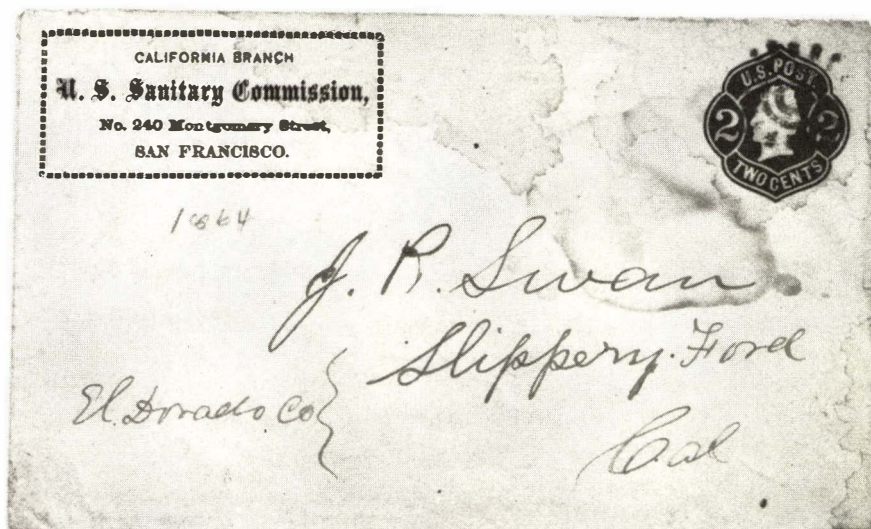 CALIFORNIA BRANCH
U. S. Sanitary Commission,
No. 240 Montgomery Street,
SAN FRANCISCO.
U.S. POST
2 2
TWO CENTS
1864
J. R. Swan
Slippery Ford
El Dorado Co
Cal